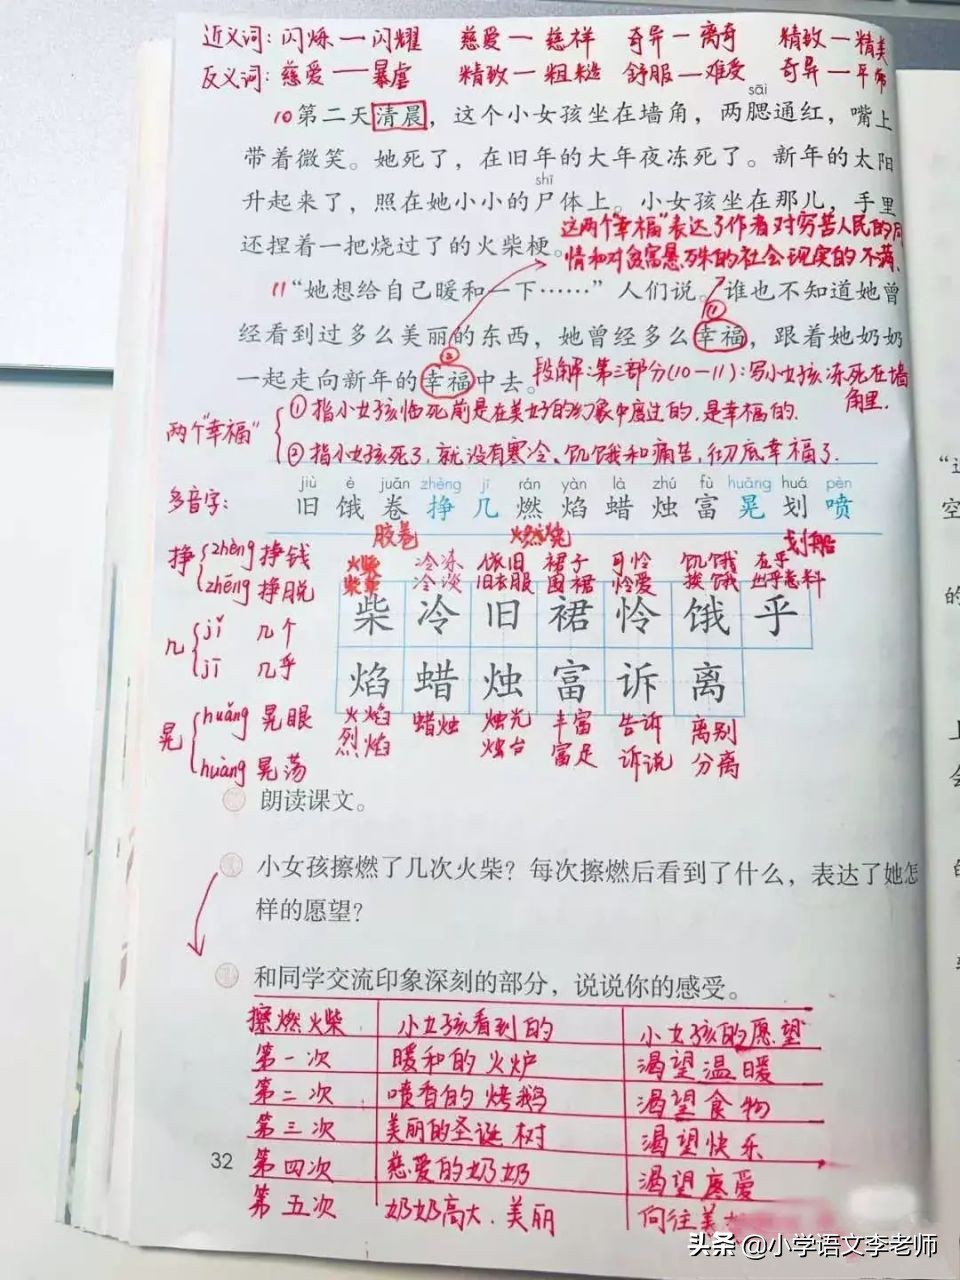 近义词：闪烁—闪耀 慈爱—慈祥 奇异—离奇 精致—精美
反义词：慈爱—暴虐 精致—粗糙 舒服—难受 奇异—平
sāi
10第二天清晨，这个小女孩坐在墙角，两腮通红，嘴上
带着微笑。她死了，在旧年的大年夜冻死了。新年的太阳
shī
升起来了，照在她小小的尸体上。小女孩坐在那儿，手里
还捏着一把烧过了的火柴梗。
这两个"幸福"表达了作者对穷苦人民的同
情和对贫富悬殊的社会现实的不满。
11“她想给自己暖和一下……”人们说。谁也不知道她曾
①
经看到过多么美丽的东西，她曾经多么幸福，跟着她奶奶
②
一起走向新年的幸福中去。
段解：第三部分(10—11)：写小女孩冻死在墙
角里。
两个"幸福"
①指小女孩临死前是在美好的幻象中度过的，是幸福的。
②指小女孩死了，就没有寒冷、饥饿和痛苦，彻底幸福了。
多音字：
jiù è juǎn zhèng jī rán yàn là zhú fù huǎng huá pēn
旧 饿 卷 挣 几 燃 焰 蜡 烛 富 晃 划 喷
胶卷 燃烧 划船
挣 zhèng 挣钱
zhēng 挣脱
几 jǐ 几个
jī 几乎
晃 huǎng 晃眼
huàng 晃荡
火柴 冷冻 依旧 裙子 可怜 饥饿 在乎
冷淡 旧衣服 围裙 怜爱 挨饿 出乎意料
柴 冷 旧 裙 怜 饿 乎
焰 蜡 烛 富 诉 离
火焰 蜡烛 烛光 丰富 告诉 离别
烈焰 烛台 富足 诉说 分离
朗读课文。
小女孩擦燃了几次火柴？每次擦燃后看到了什么，表达了她怎
样的愿望？
和同学交流印象深刻的部分，说说你的感受。
擦燃火柴 小女孩看到的 小女孩的愿望
第一次 暖和的火炉 渴望温暖
第二次 喷香的烤鹅 渴望食物
第三次 美丽的圣诞树 渴望快乐
第四次 慈爱的奶奶 渴望疼爱
第五次 奶奶高大、美丽 向往美
32
头条 @小学语文李老师